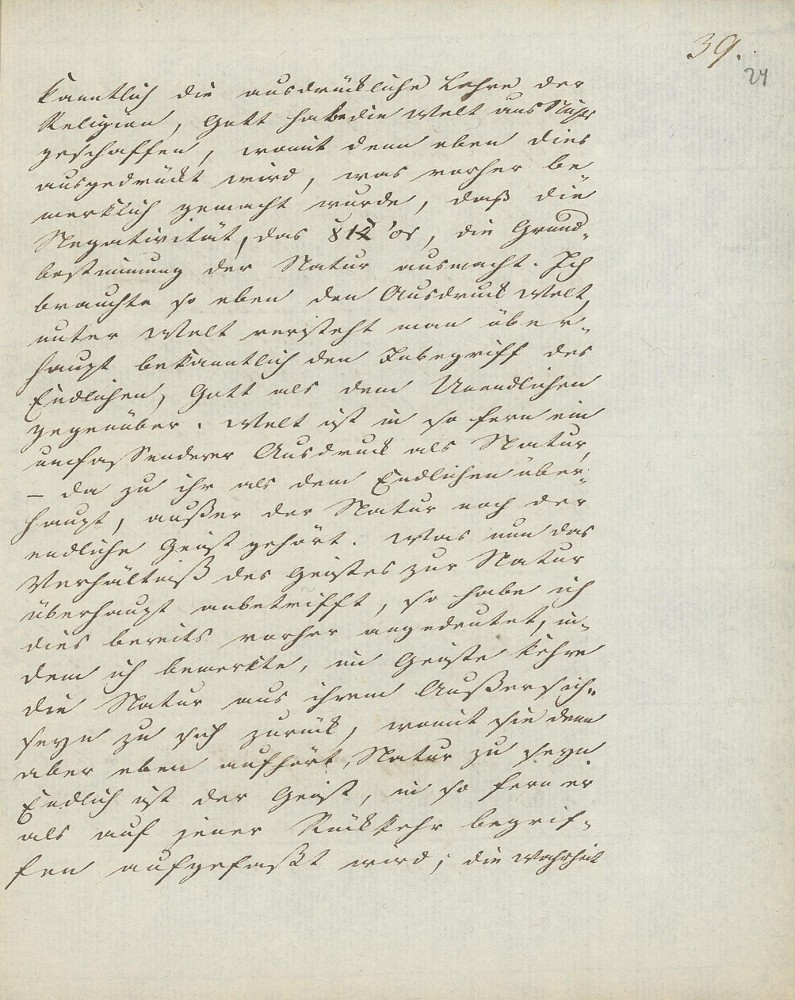 39.
24
kanntlich die ausdrückliche Lehre der
Religion, Gott habe die Welt aus Nichts
geschaffen, womit denn eben dies
ausgedrückt wird, was vorher be
merklich gemacht wurde, daß die
Negativität, das die Grund-
bestimmung der Natur ausmacht. Ich
brauchte so eben den Ausdruck Welt,
unter Welt versteht man über-
haupt bekanntlich den Inbegriff des
Endlichen, Gott als dem Unendlichen
gegenüber. Welt ist in so fern ein
umfassenderer Ausdruck als Natur,
– da zu ihr als dem Endlichen über-
haupt, außer der Natur noch der
endliche Geist gehört. Was nun das
Verhältniß des Geistes zur Natur
überhaupt anbetrifft, so habe ich
dies bereits vorher angedeutet, in-
dem ich bemerkte, im Geiste kehre
die Natur aus ihrem Außersich-
seyn zu sich zurück, womit sie denn
aber eben aufhört, Natur zu seyn.
Endlich ist der Geist, in so fern er
als auf jener Rückkehr begrif-
fen aufgefaßt wird; die Wahrheit